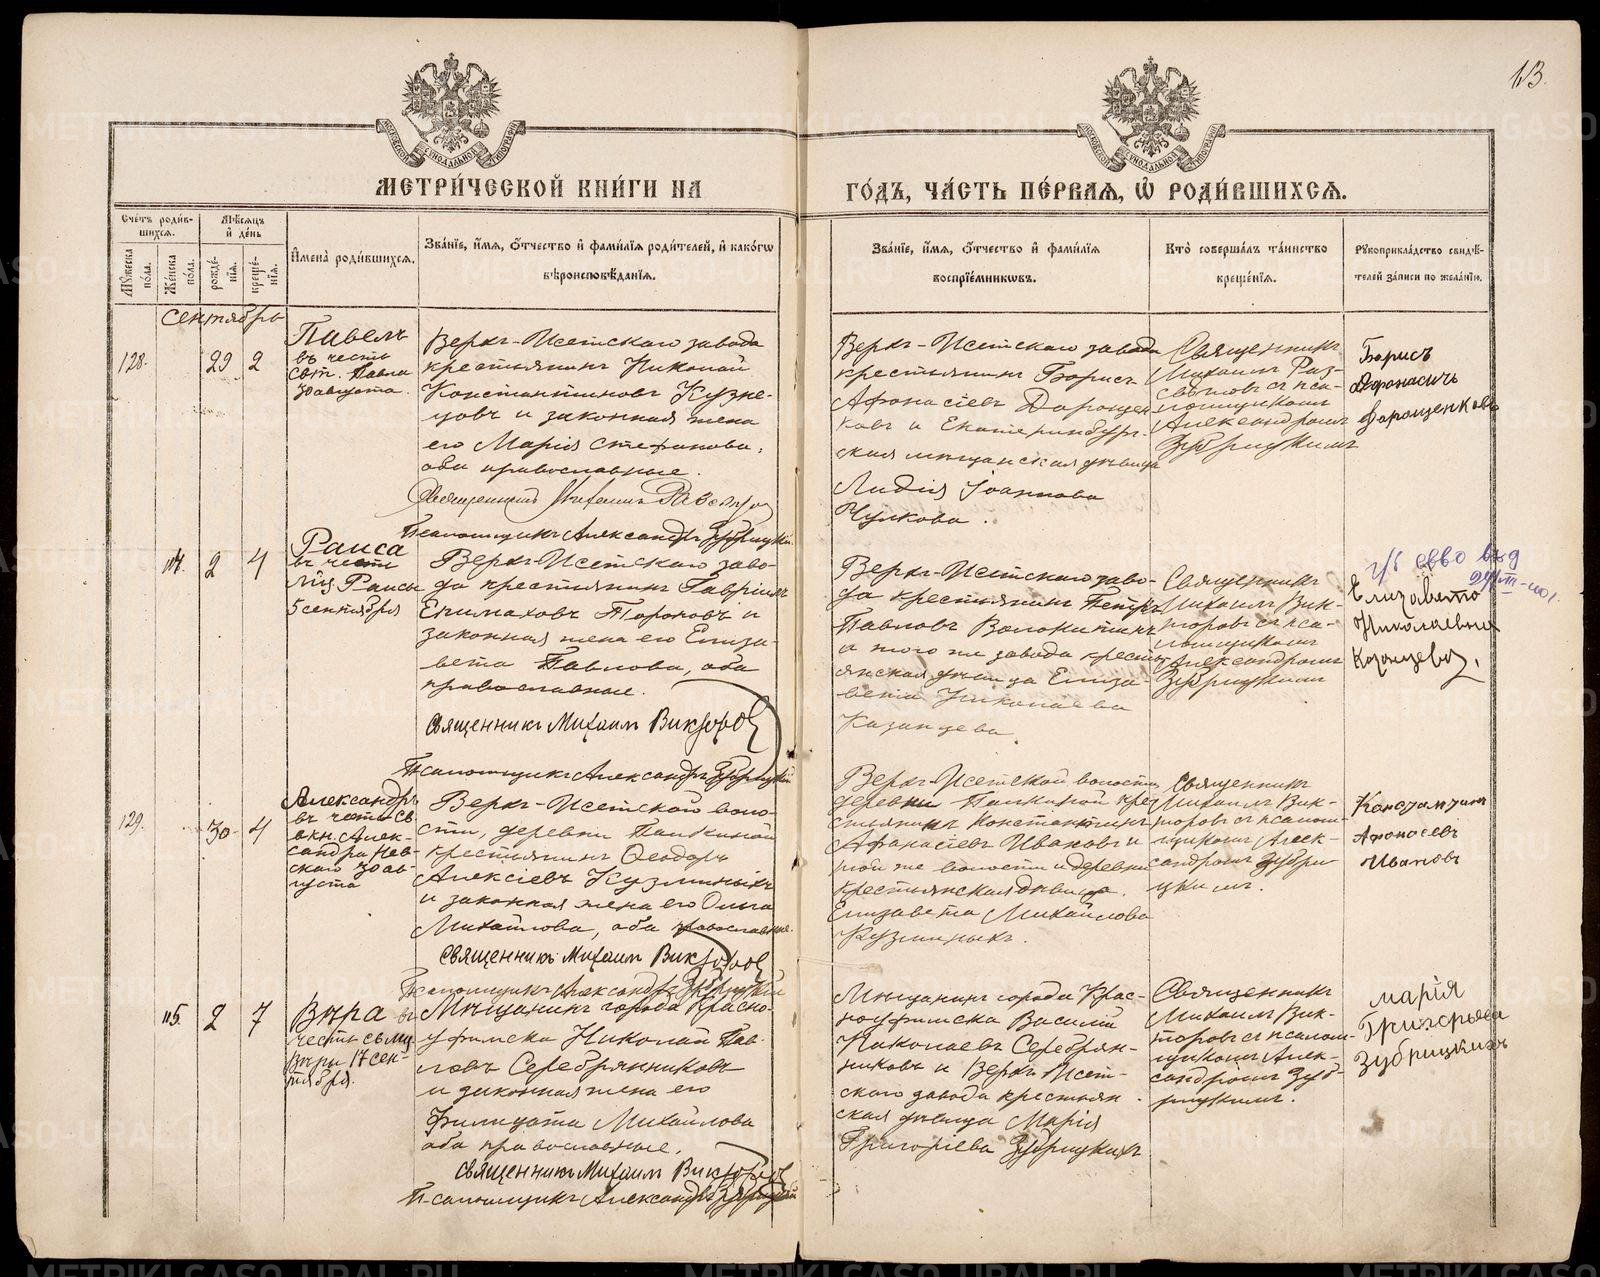 13.
МЕТРИ́ЧЕСКОЙ КНИ́ГИ НА
ГО́ДЪ, ЧА́СТЬ ПЕ́РВАѦ, Ѡ҆ РОДИ́ВШИХСѦ.
Сче́тъ роди́в-
шихсѧ.
Мꙋ́жеска
по́ла.
Же́нска
по́ла.
Мѣ́сѧцъ
и҆ де́нь
рожде́-
нїѧ.
креще́-
нїѧ.
И҆мена̀ роди́вшихсѧ.
Зва́нїе, и҆́мѧ, ѻ҆́тчество и҆ фами́лїѧ роди́телей, и҆ како́гѡ
вѣроисповѣ́данїѧ.
Зва́нїе, и҆́мѧ, ѻ҆́тчество и҆ фами́лїѧ
воспрїе́мникѡвъ.
Кто̀ соверша́лъ та́инство
креще́нїѧ.
Рꙋкоприкла́дство свидѣ́-
телей за́писи по жела́нїю.
Сентябрь
128.
29
2
Павелъ
въ честь
свт. Павла
30 августа.
Верхъ-Исетскаго завода
крестьянинъ Николай
Константиновъ Кузне-
цовъ и законная жена
его Марія Стефанова,
оба православные.
Священникъ Михаилъ
Псаломщикъ Александръ Зубрицкій
Верхъ-Исетскаго завода
крестьянинъ Борисъ
Афанасіевъ Дорощен-
ковъ и Екатеринбург-
ская мѣщанская дѣвица
Лидія Іоаннова
Чулкова.
Священникъ
Михаилъ Раз-
съ пса-
ломщикомъ
Александромъ
Зубрицкимъ
Борисъ
Афонасичь
Дорощенковъ
114.
2
4
Раиса
въ честь
мц. Раисы
5 сентября
Верхъ-Исетскаго заво-
да крестьянинъ Гавріилъ
Епимаховъ Тороповъ и
законная жена его Елиза-
вета Павлова, оба
православные.
Священникъ Михаилъ Викторовъ
Псаломщикъ Александръ Зубрицкій
Верхъ-Исетскаго заво-
да крестьянинъ Петръ
Павловъ Волокитинъ
и того же завода кресть-
янская дѣвица Елиза-
вета Николаева
Казанцева.
Священникъ
Михаилъ Вик-
торовъ съ пса-
ломщикомъ
Александромъ
Зубрицкимъ
Елизавета
Николаевна
Казанцева.
129.
30
4
Александръ
въ честь св.
вкн. Алек-
сандра Нев-
скаго 30 ав-
густа
Верхъ-Исетской воло-
сти, деревни Палкиной
крестьянинъ Ѳеодоръ
Алексіевъ Кузминыхъ
и законная жена его Ольга
Михайлова, оба православные.
Священникъ Михаилъ Викторовъ
Псаломщикъ Александръ Зубрицкій
Верхъ-Исетской волости
деревни Палкиной крес-
тьянинъ Константинъ
Афанасіевъ Ивановъ и
той же волости и деревни
крестьянская дѣвица
Елизавета Михайлова
Кузминыхъ.
Священникъ
Михаилъ Вик-
торовъ съ псалом-
щикомъ Алек-
сандромъ Зубри-
цкимъ.
Константинъ
Афонасіевъ
Ивановъ
115.
2
7
Вѣра въ
честь св. мц.
Вѣры 17 сен-
тября.
Мѣщанинъ города Красно-
уфимска Николай Пав-
ловъ Серебрянниковъ
и законная жена его
Филицата Михайлова
оба православные.
Священникъ Михаилъ Викторовъ
Псаломщикъ Александръ Зубрицкій
Мѣщанинъ города Крас-
ноуфимска Василій
Николаевъ Серебрян-
никовъ и Верхъ-Исет-
скаго завода крестьян-
ская дѣвица Марія
Григоріева Зубрицкихъ
Священникъ
Михаилъ Вик-
торовъ съ псалом-
щикомъ Алек-
сандромъ Зуб-
рицкимъ.
Марія
Григорьева
Зубрицкихъ